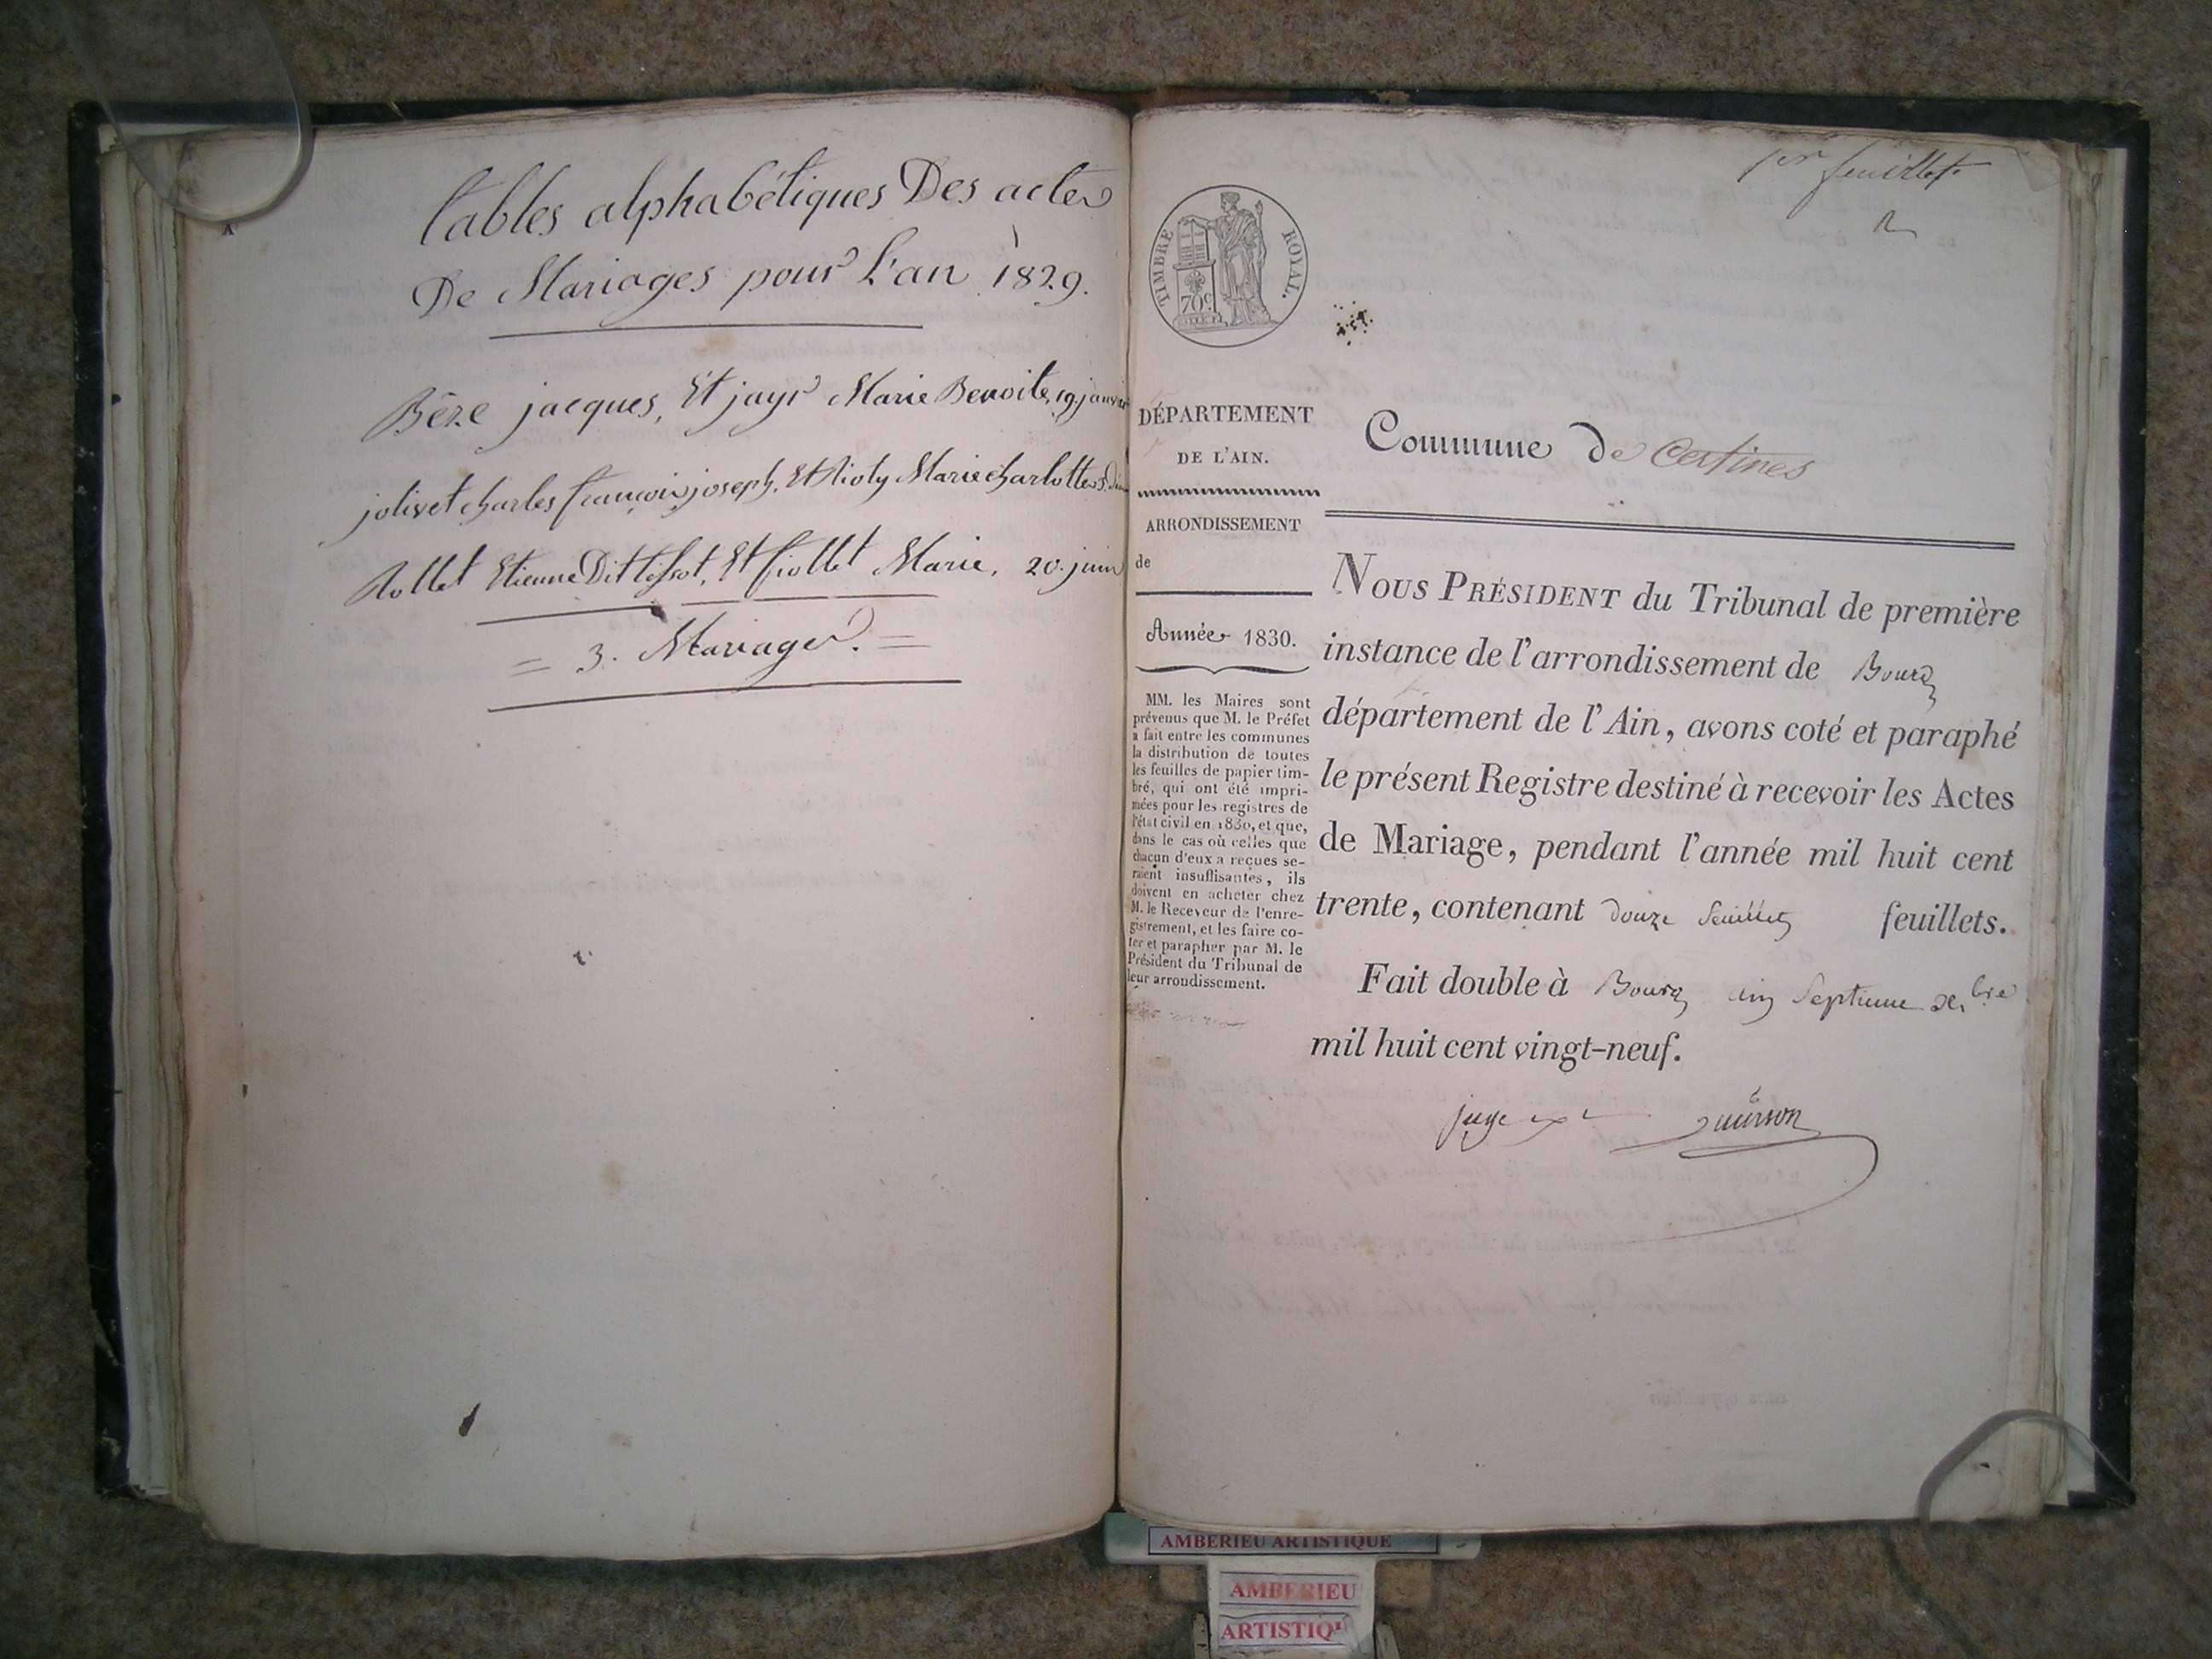 tables alphabétiques Des actes
De Mariages pour L'an 1829.
Bêze jacques, Et jayr Marie Benoite, 19. janvier
jolivet charles françois joseph, Et Marie charlotte
Rollet Etienne Dit tissot, Et fiollet Marie, 20. juin
= 3. Mariages. =
1er feuillet.
TIMBRE ROYAL.
70c
DÉPARTEMENT
DE L'AIN.
ARRONDISSEMENT
de
Année 1830.
MM. les Maires sont
prévenus que M. le Préfet
a fait entre les communes
la distribution de toutes
les feuilles de papier tim-
bré, qui ont été impri-
mées pour les registres de
l'état civil en 1830, et que,
dans le cas où celles que
chacun d'eux a reçues se-
raient insuffisantes, ils
doivent en acheter chez
M. le Receveur de l'enre-
gistrement, et les faire co-
ter et parapher par M. le
Président du Tribunal de
leur arrondissement.
Commune de Certines
NOUS PRÉSIDENT du Tribunal de première
instance de l'arrondissement de Bourg
département de l'Ain, avons coté et paraphé
le présent Registre destiné à recevoir les Actes
de Mariage, pendant l'année mil huit cent
trente, contenant douze feuillets feuillets.
Fait double à Bourg
mil huit cent vingt-neuf.
juge
AMBERIEU ARTISTIQUE
AMBERIEU
ARTISTIQU